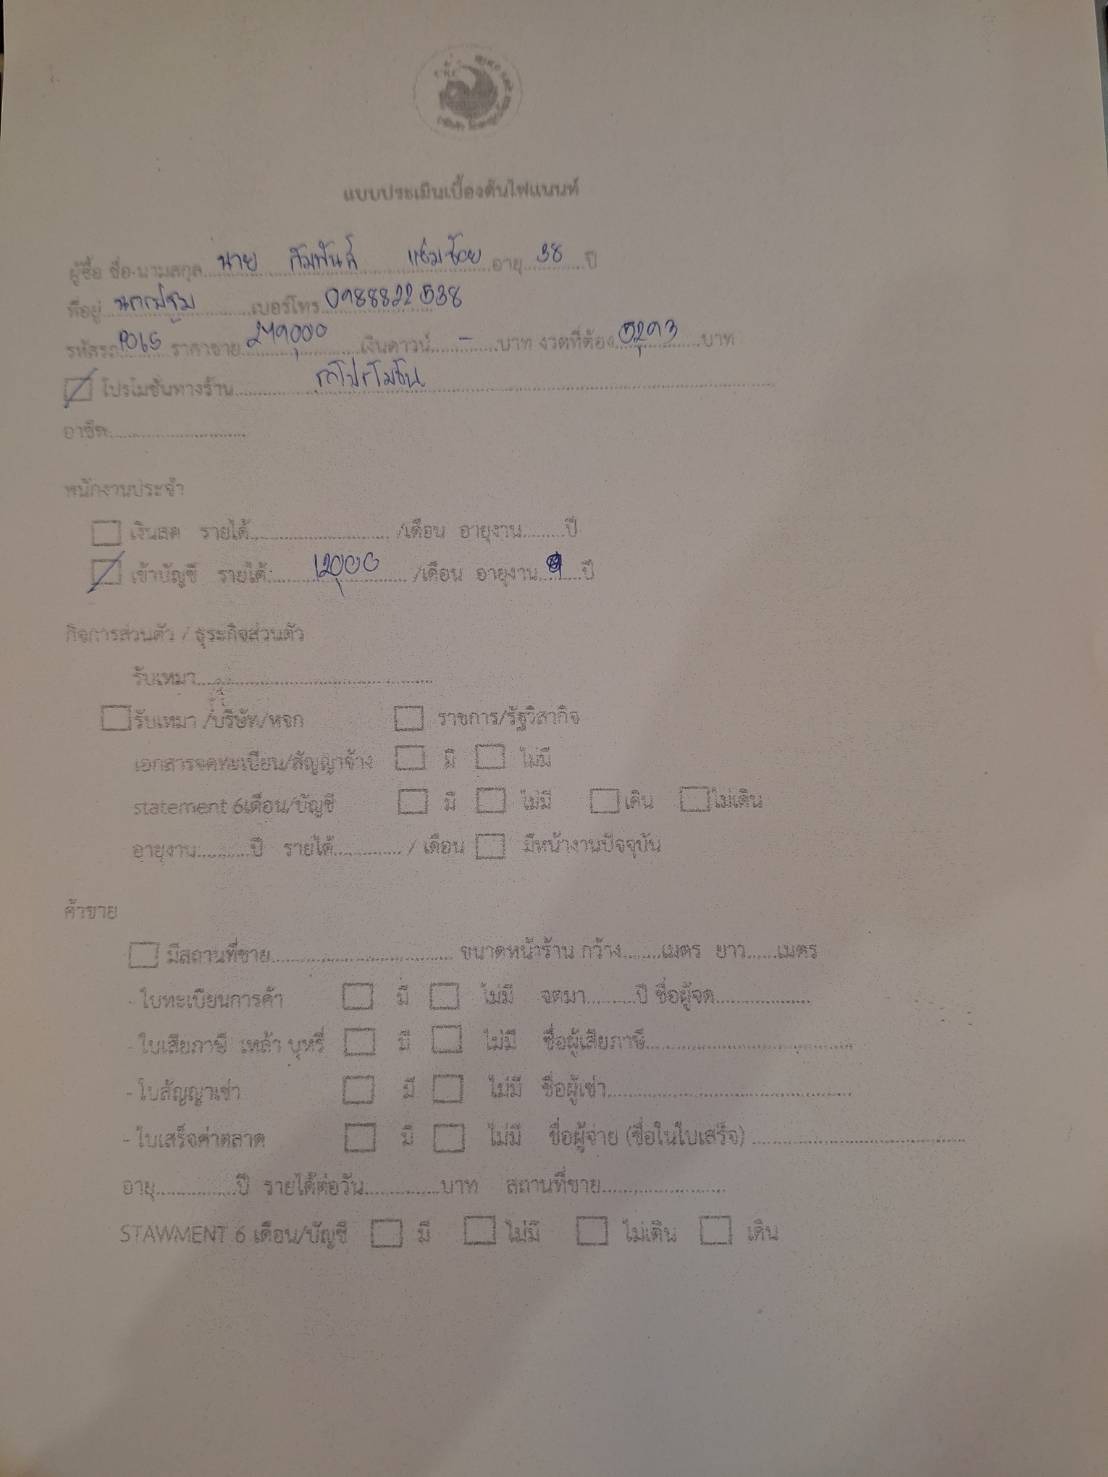 แบบประเมินเบื้องต้นไฟแนนท์
ผู้ซื้อ ชื่อ-นามสกุล นาย สัมพันธ์ แช่มช้อย อายุ 38 ปี
ที่อยู่ นครปฐม เบอร์โทร 0988822538
รหัสรถ P065 ราคาขาย 279,000 เงินดาวน์ - บาท งวดที่ต้อง 5,293 บาท
โปรโมชั่นทางร้าน รถโปรโมชั่น
อาชีพ
พนักงานประจำ
เงินสด รายได้ /เดือน อายุงาน ปี
เข้าบัญชี รายได้ 12,000 /เดือน อายุงาน ปี
กิจการส่วนตัว / ธุระกิจส่วนตัว
รับเหมา
รับเหมา /บริษัท/หจก ราชการ/รัฐวิสากิจ
เอกสารจดทะเบียน/สัญญาจ้าง มี ไม่มี
statement 6เดือน/บัญชี มี ไม่มี เดิน ไม่เดิน
อายุงาน ปี รายได้ / เดือน มีหน้างานปัจจุบัน
ค้าขาย
มีสถานที่ขาย ขนาดหน้าร้าน กว้าง เมตร ยาว เมตร
- ใบทะเบียนการค้า มี ไม่มี จดมา ปี ชื่อผู้จด
- ใบเสียภาษี เหล้า บุหรี่ มี ไม่มี ชื่อผู้เสียภาษี
- ใบสัญญาเช่า มี ไม่มี ชื่อผู้เช่า
- ใบเสร็จค่าตลาด มี ไม่มี ชื่อผู้จ่าย (ชื่อในใบเสร็จ)
อายุ ปี รายได้ต่อวัน บาท สถานที่ขาย
STAWMENT 6 เดือน/บัญชี มี ไม่มี ไม่เดิน เดิน